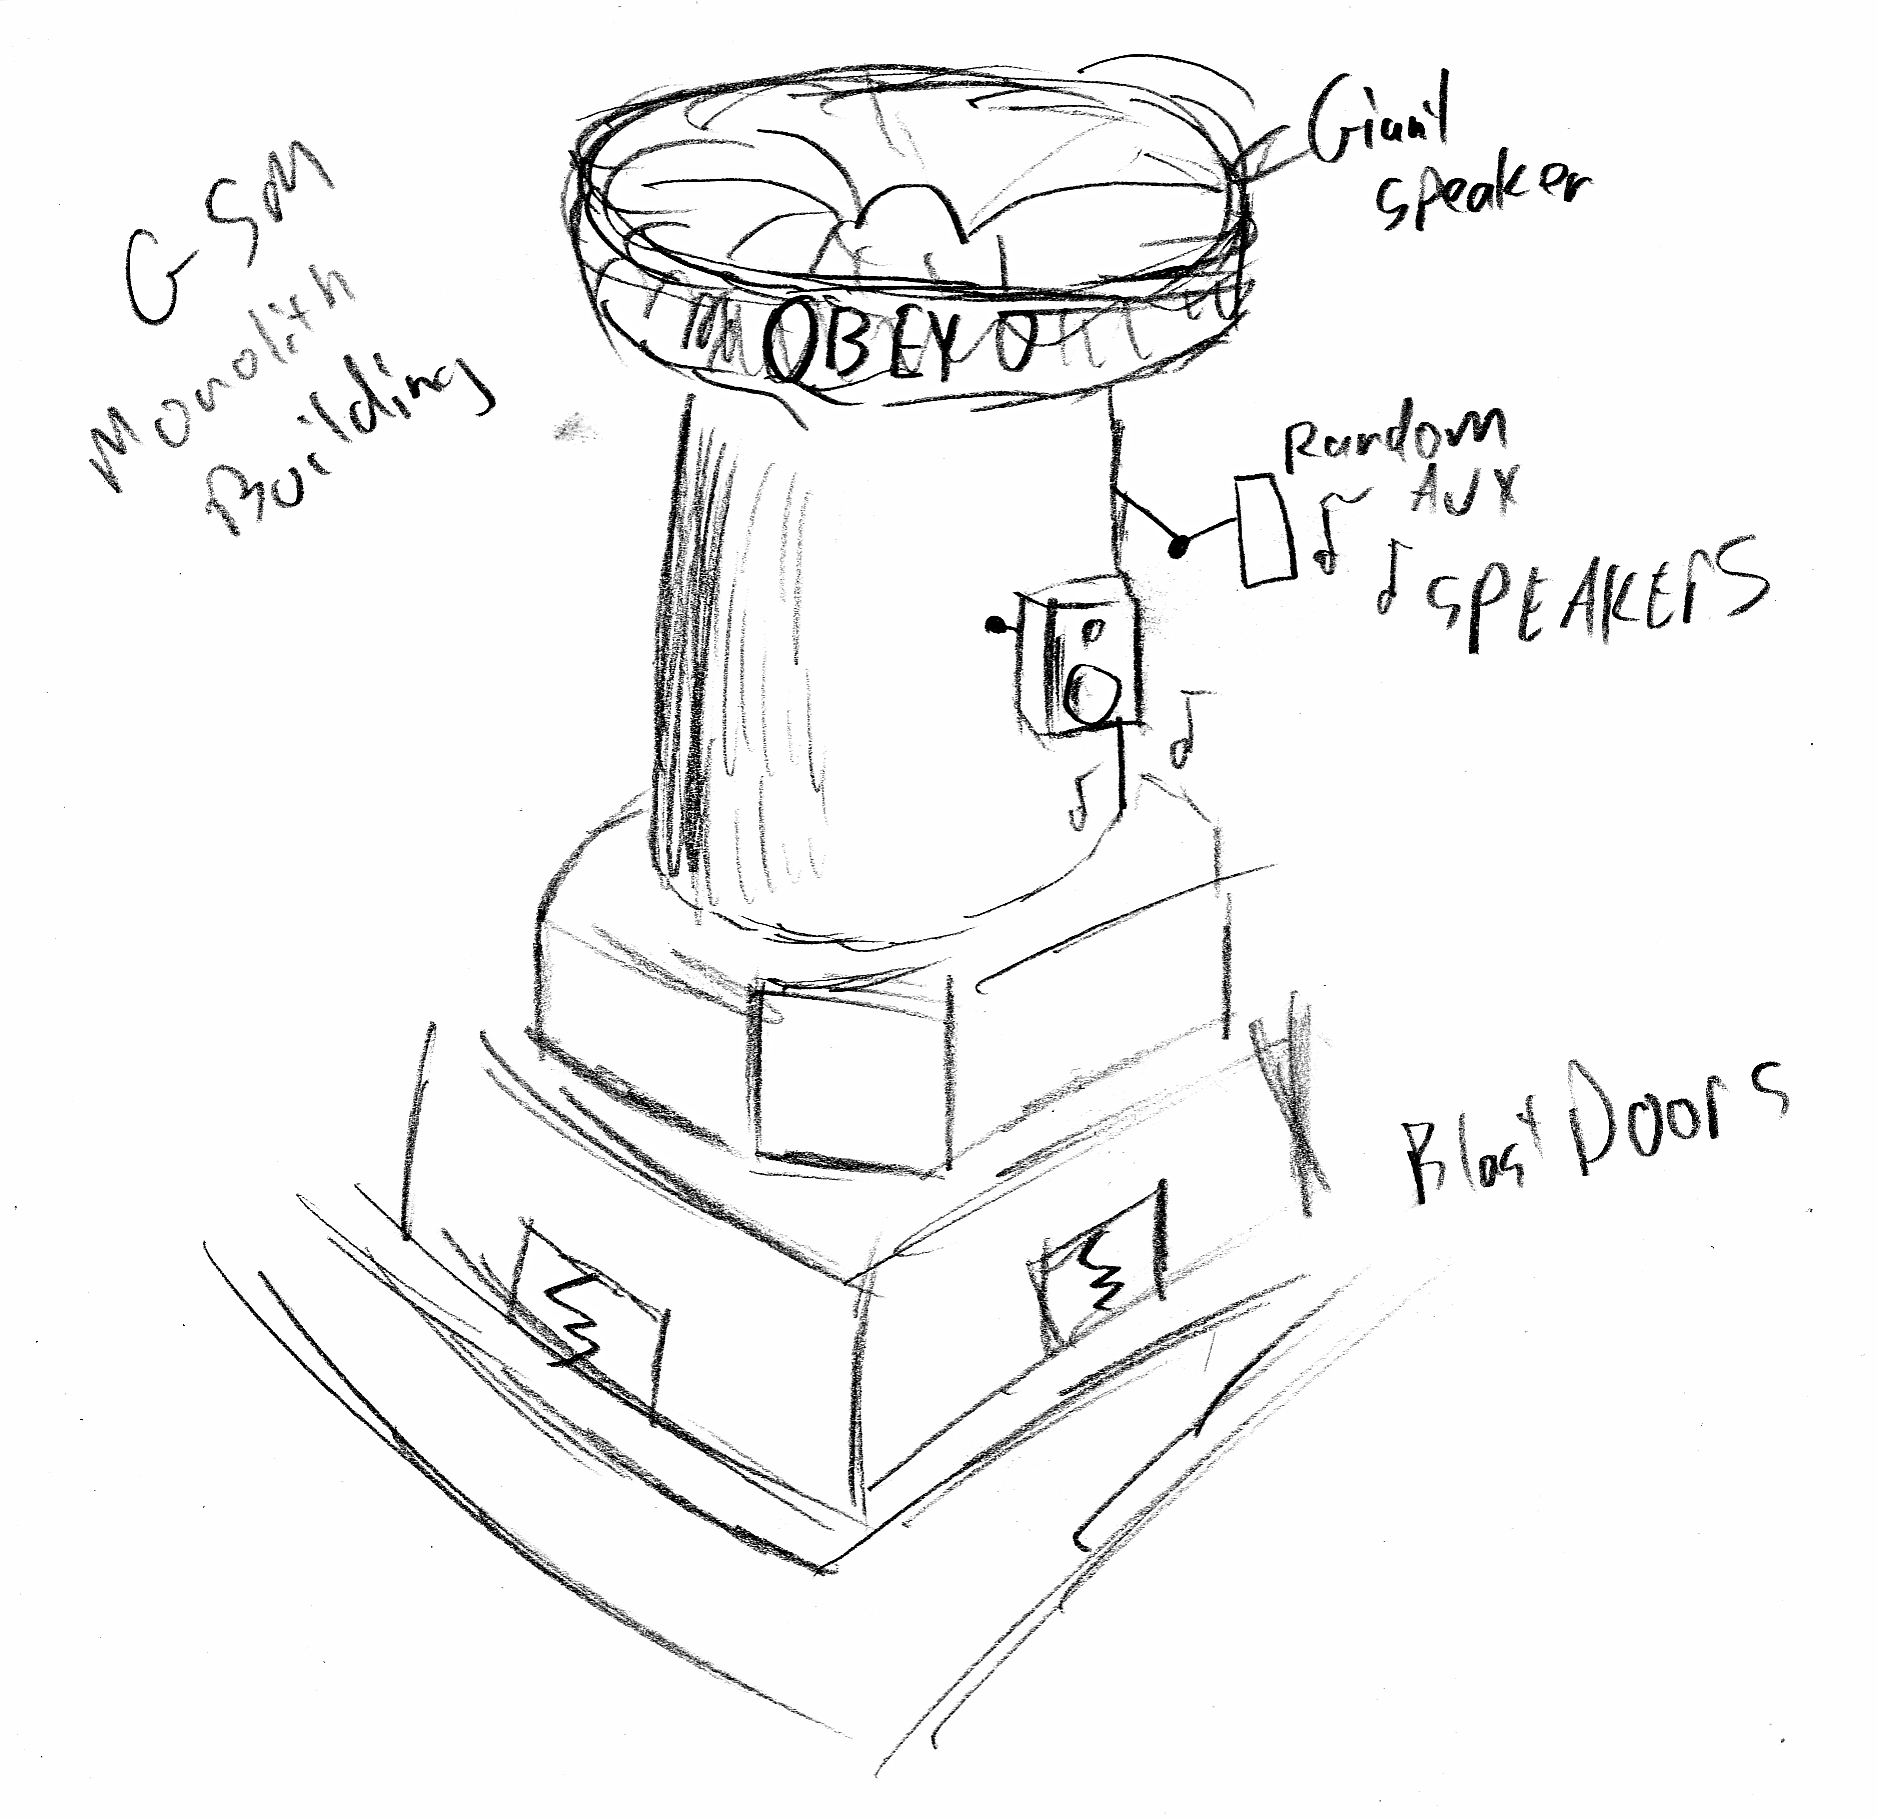 GSM
Monolith
Building
Giant
speaker
OBEY O
Random
AUX
SPEAKErS
Blast Doors